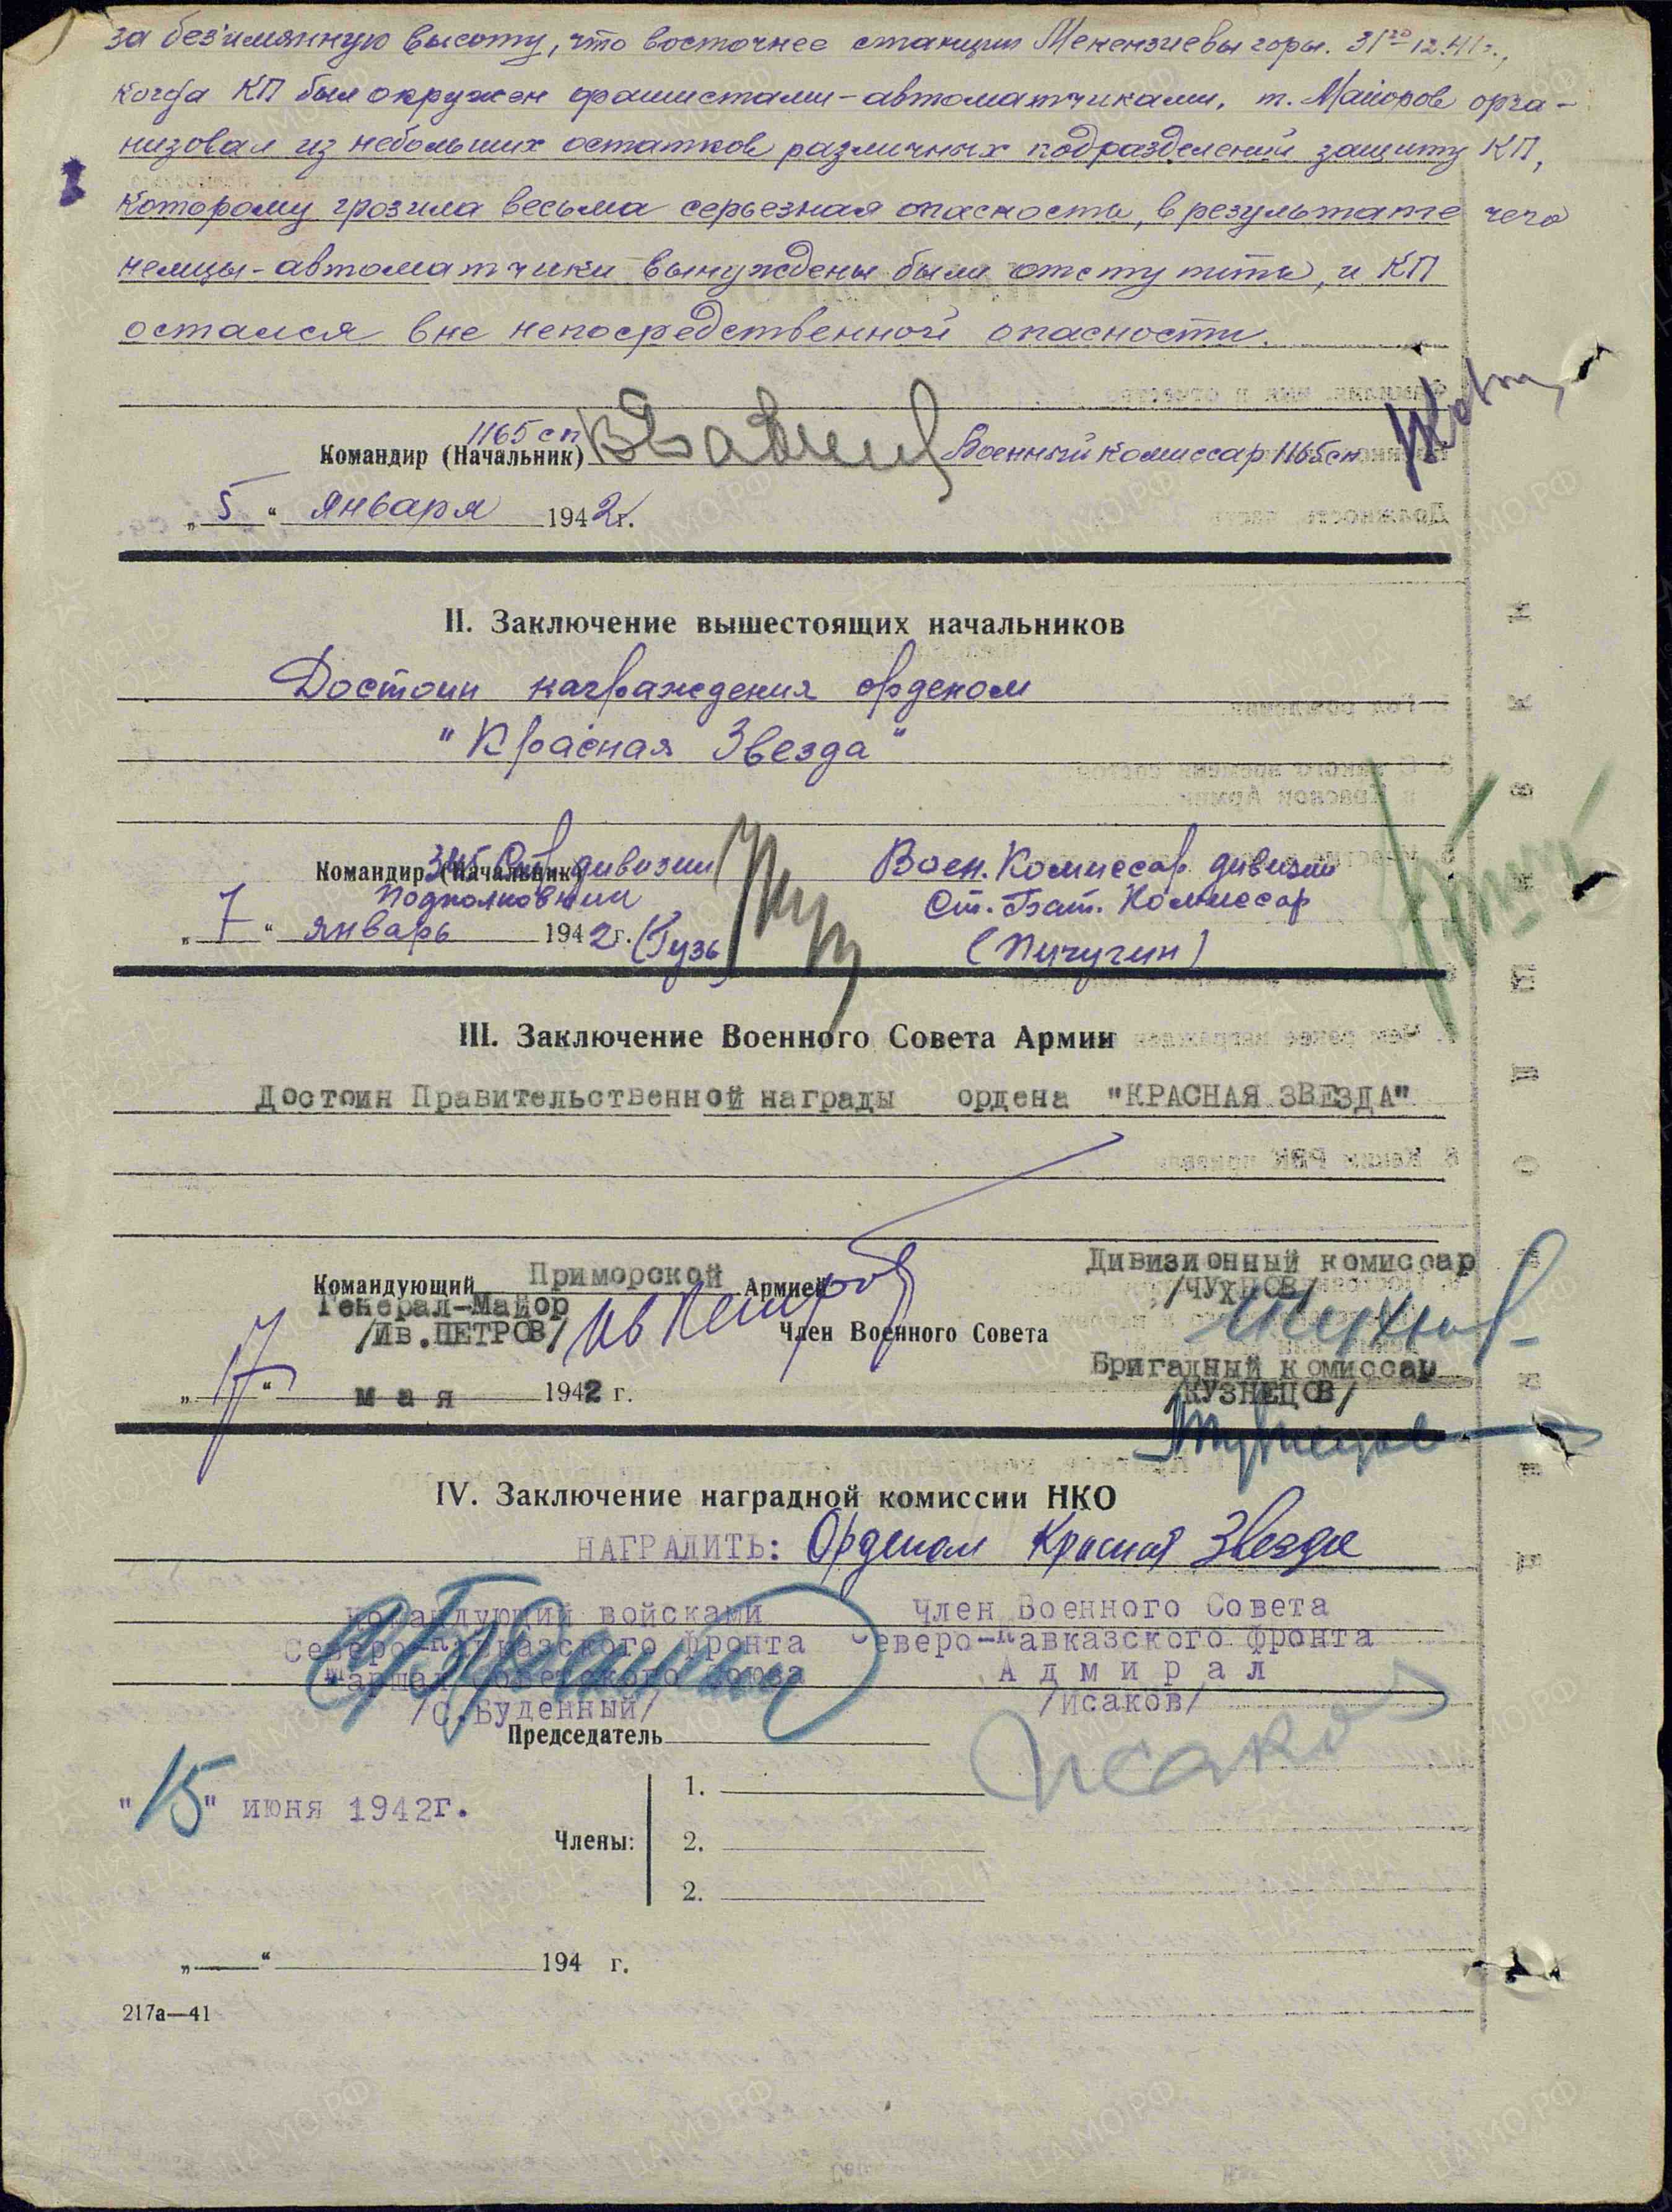 за без'имянную высоту, что восточнее станции Мекензиевы горы. 31го 12.41г.,
когда КП был окружен фашистами-автоматчиками, т. Майоров орга-
низовал из небольших остатков различных подразделений защиту КП,
которому грозила весьма серьезная опасность, в результате чего
немцы-автоматчики вынуждены были отступить, и КП
остался вне непосредственной опасности.
1165 сп
Командир (Начальник) Военный комиссар 1165сп
„5“ января 1942г.
II. Заключение вышестоящих начальников
Достоин награждения орденом
"Красная Звезда"
Командир (Начальник) 345 Стр дивизии Воен. Комиссар дивизии
Подполковник Ст. Бат. Комиссар
„7“ январь 1942г. (Гузь) (Пичугин)
III. Заключение Военного Совета Армии
Достоин Правительственной награды ордена "КРАСНАЯ ЗВЕЗДА"
Командующий Приморской Армией
Генерал-Майор
/Ив.ПЕТРОВ/ Ив Петров
Дивизионный комиссар
/ЧУХНОВ/
Член Военного Совета
Бригадный комиссар
/КУЗНЕЦОВ/
Кузнецов
„17“ мая 1942 г.
IV. Заключение наградной комиссии НКО
НАГРАДИТЬ: Орденом Красная Звезда
Командующий войсками
Северо-Кавказского фронта
Маршал Советского Союза
/С.Буденный/
Член Военного Совета
Северо-Кавказского фронта
Адмирал
/Исаков/
Исаков
Председатель
"15" июня 1942г.
Члены:
1.
2.
2.
„ “ 194 г.
217а—41